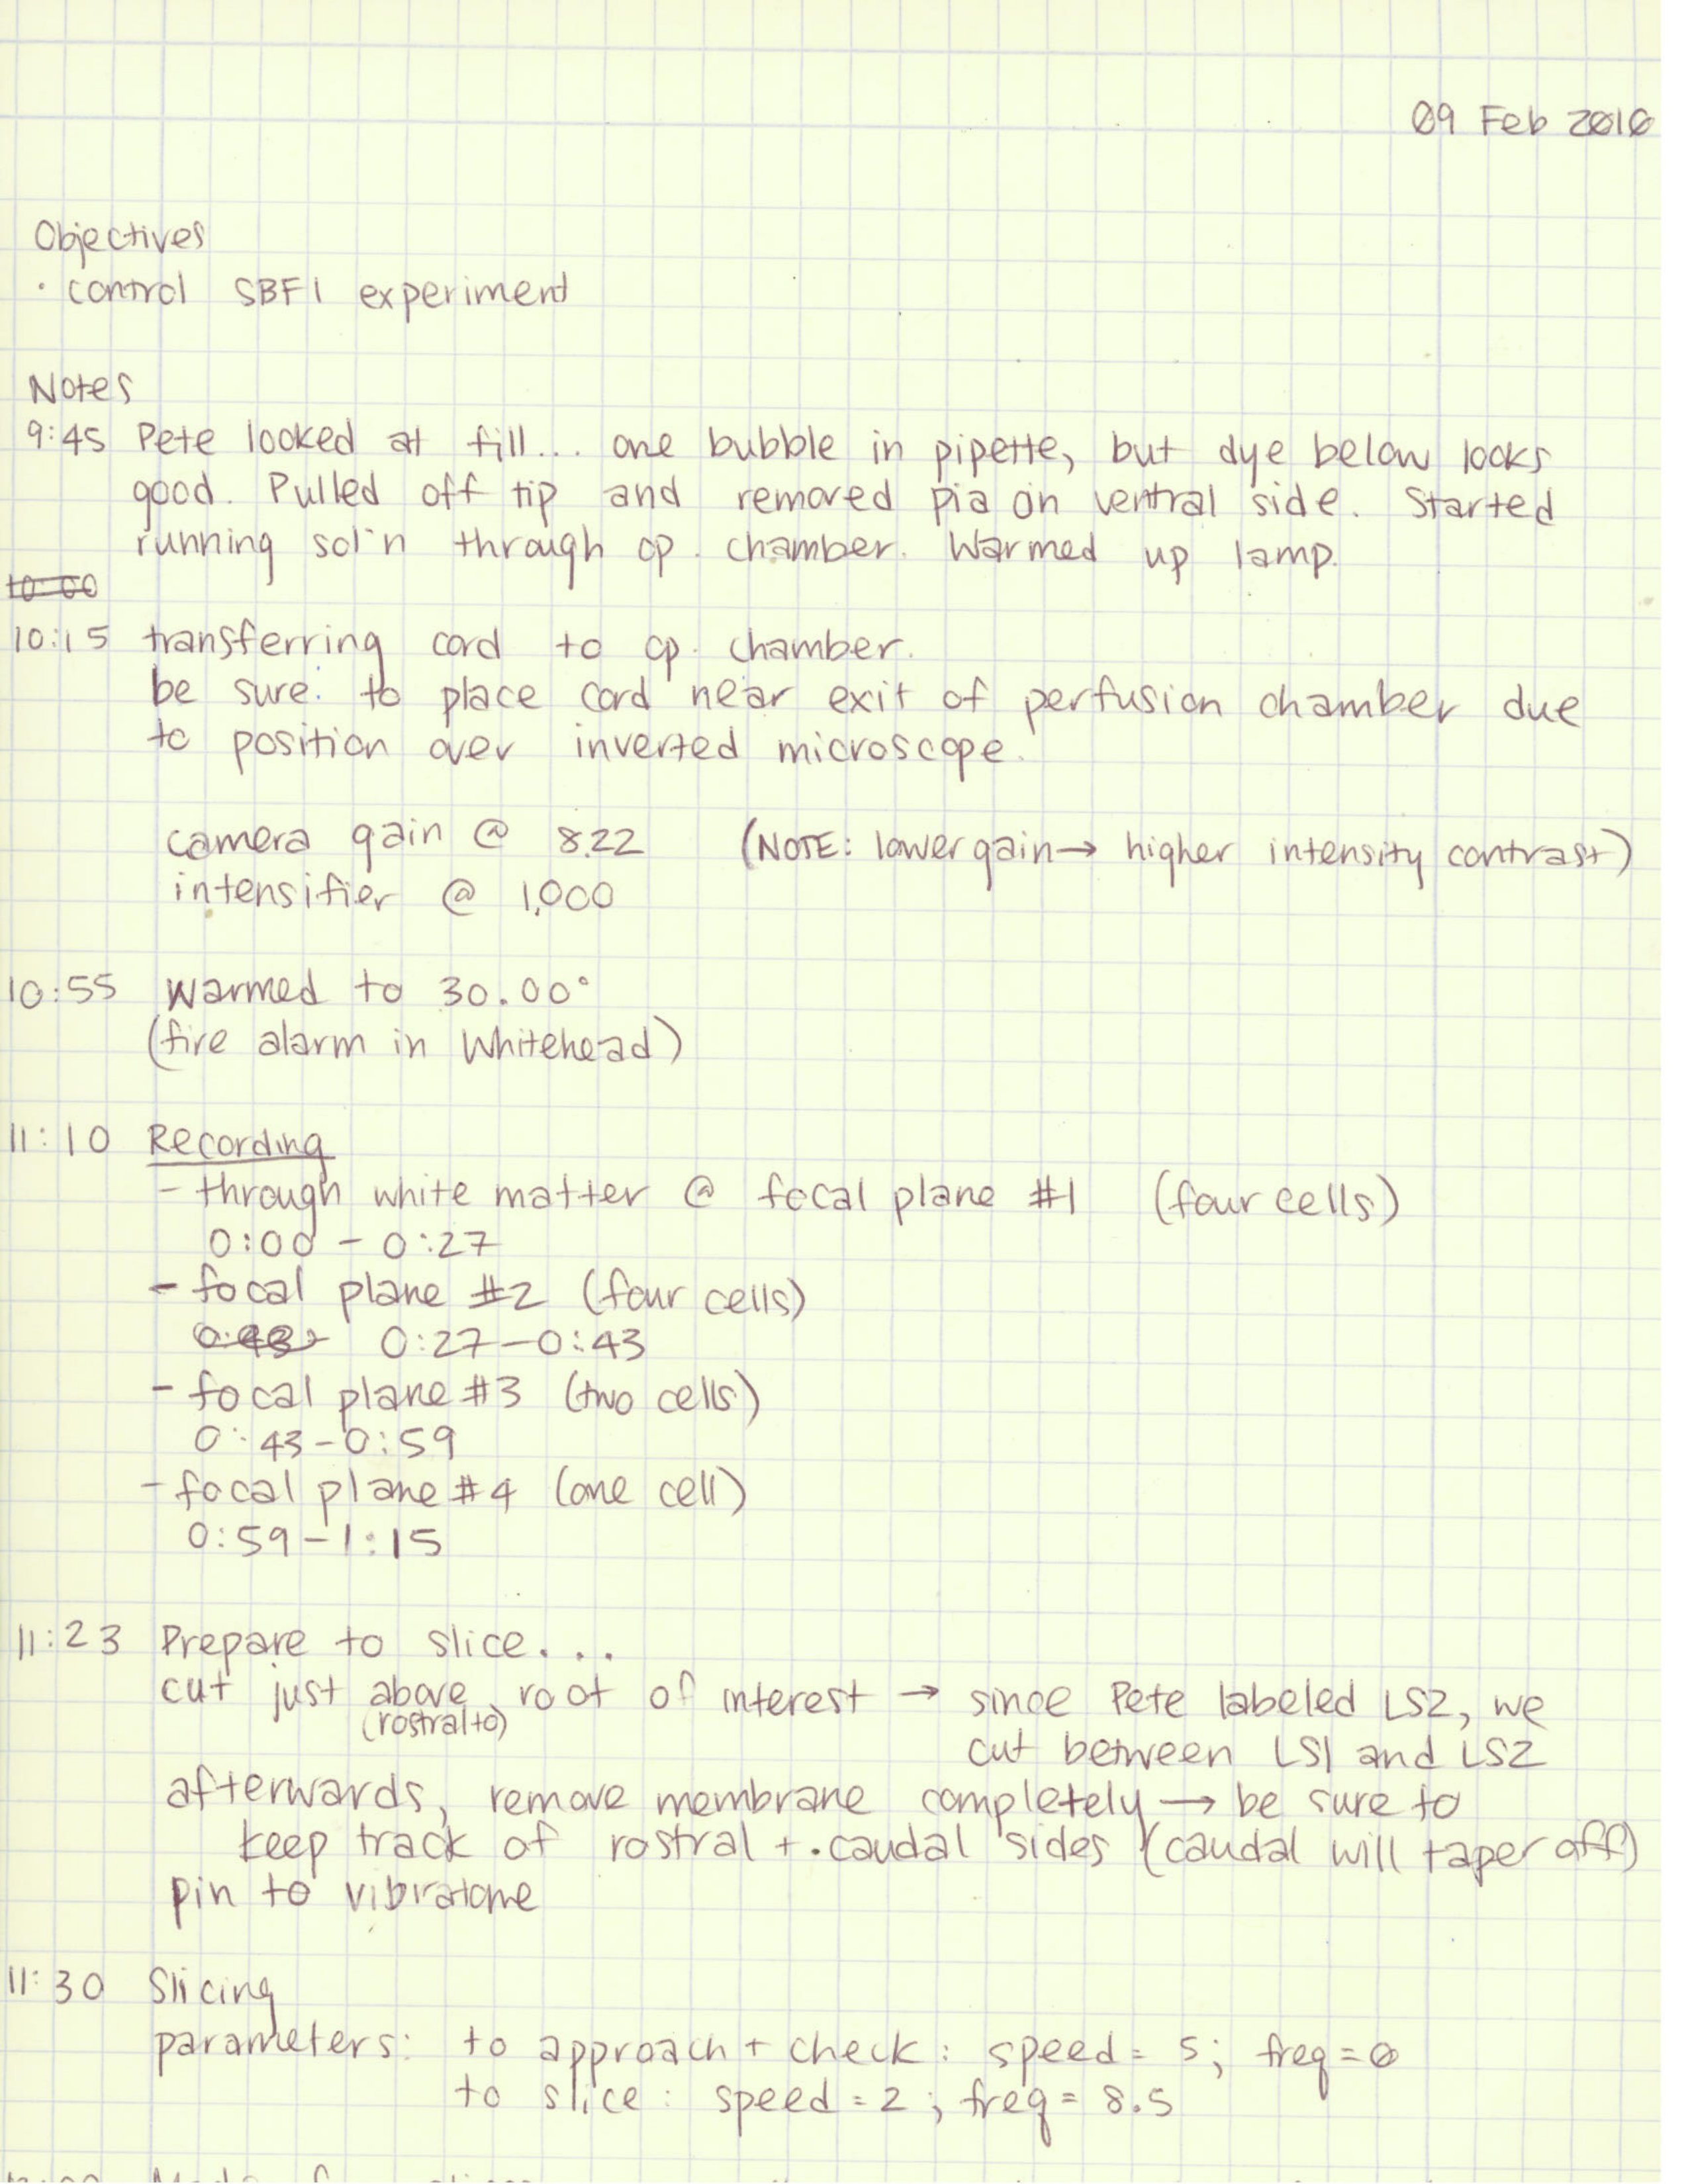 09 Feb 2010
Objectives
· control SBFI experiment
Notes
9:45 Pete looked at fill... one bubble in pipette, but dye below looks
good. Pulled off tip and removed pia on ventral side. Started
running sol'n through op. chamber. Warmed up lamp.
10:00
10:15 transferring cord to op. chamber.
be sure to place cord near exit of perfusion chamber due
to position over inverted microscope.
camera gain @ 8.22 (NOTE: lower gain → higher intensity contrast)
intensifier @ 1,000
10:55 Warmed to 30.00°
(fire alarm in Whitehead)
11:10 Recording
- through white matter @ focal plane #1 (four cells)
0:00 - 0:27
- focal plane #2 (four cells)
0:27-0:43
- focal plane #3 (two cells)
0:43-0:59
- focal plane #4 (one cell)
0:59-1:15
11:23 Prepare to slice....
cut just above root of interest → since Pete labeled LS2, we
(rostral to)
cut between LS1 and LS2
afterwards, remove membrane completely → be sure to
keep track of rostral + caudal sides (caudal will taper off)
pin to vibratome
11:30 Slicing
parameters: to approach + check: speed = 5; freq = 0
to slice: speed = 2; freq = 8.5